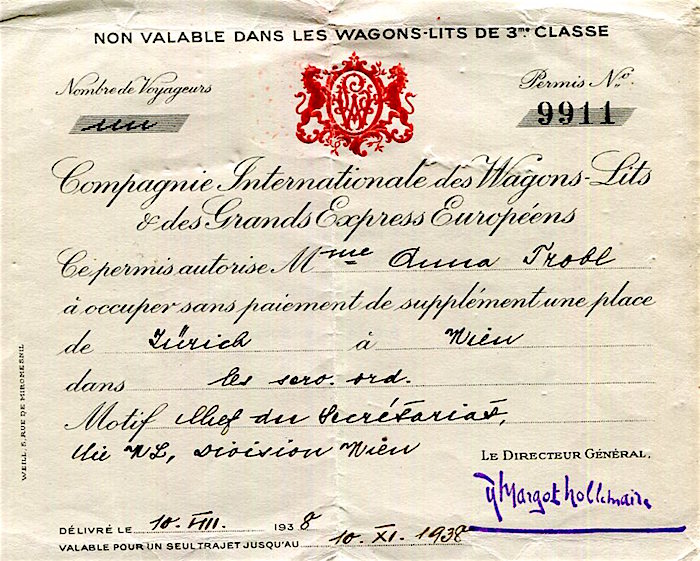 NON VALABLE DANS LES WAGONS-LITS DE 3me CLASSE
Nombre de Voyageurs
Permis No.
un
9911
Compagnie Internationale des Wagons-Lits
& des Grands Express Européens
Ce permis autorise Mme Anna Trobl
à occuper sans paiement de supplément une place
de Zürich à Wien
dans les serv. ord.
Motif Chef du Secrétariat,
Cie WL, Division Wien
LE DIRECTEUR GÉNÉRAL.
DÉLIVRÉ LE 10. VIII. 1938
VALABLE POUR UN SEUL TRAJET JUSQU'AU 10. XI. 1938
WEILL, 5, RUE DE MIROMESNIL